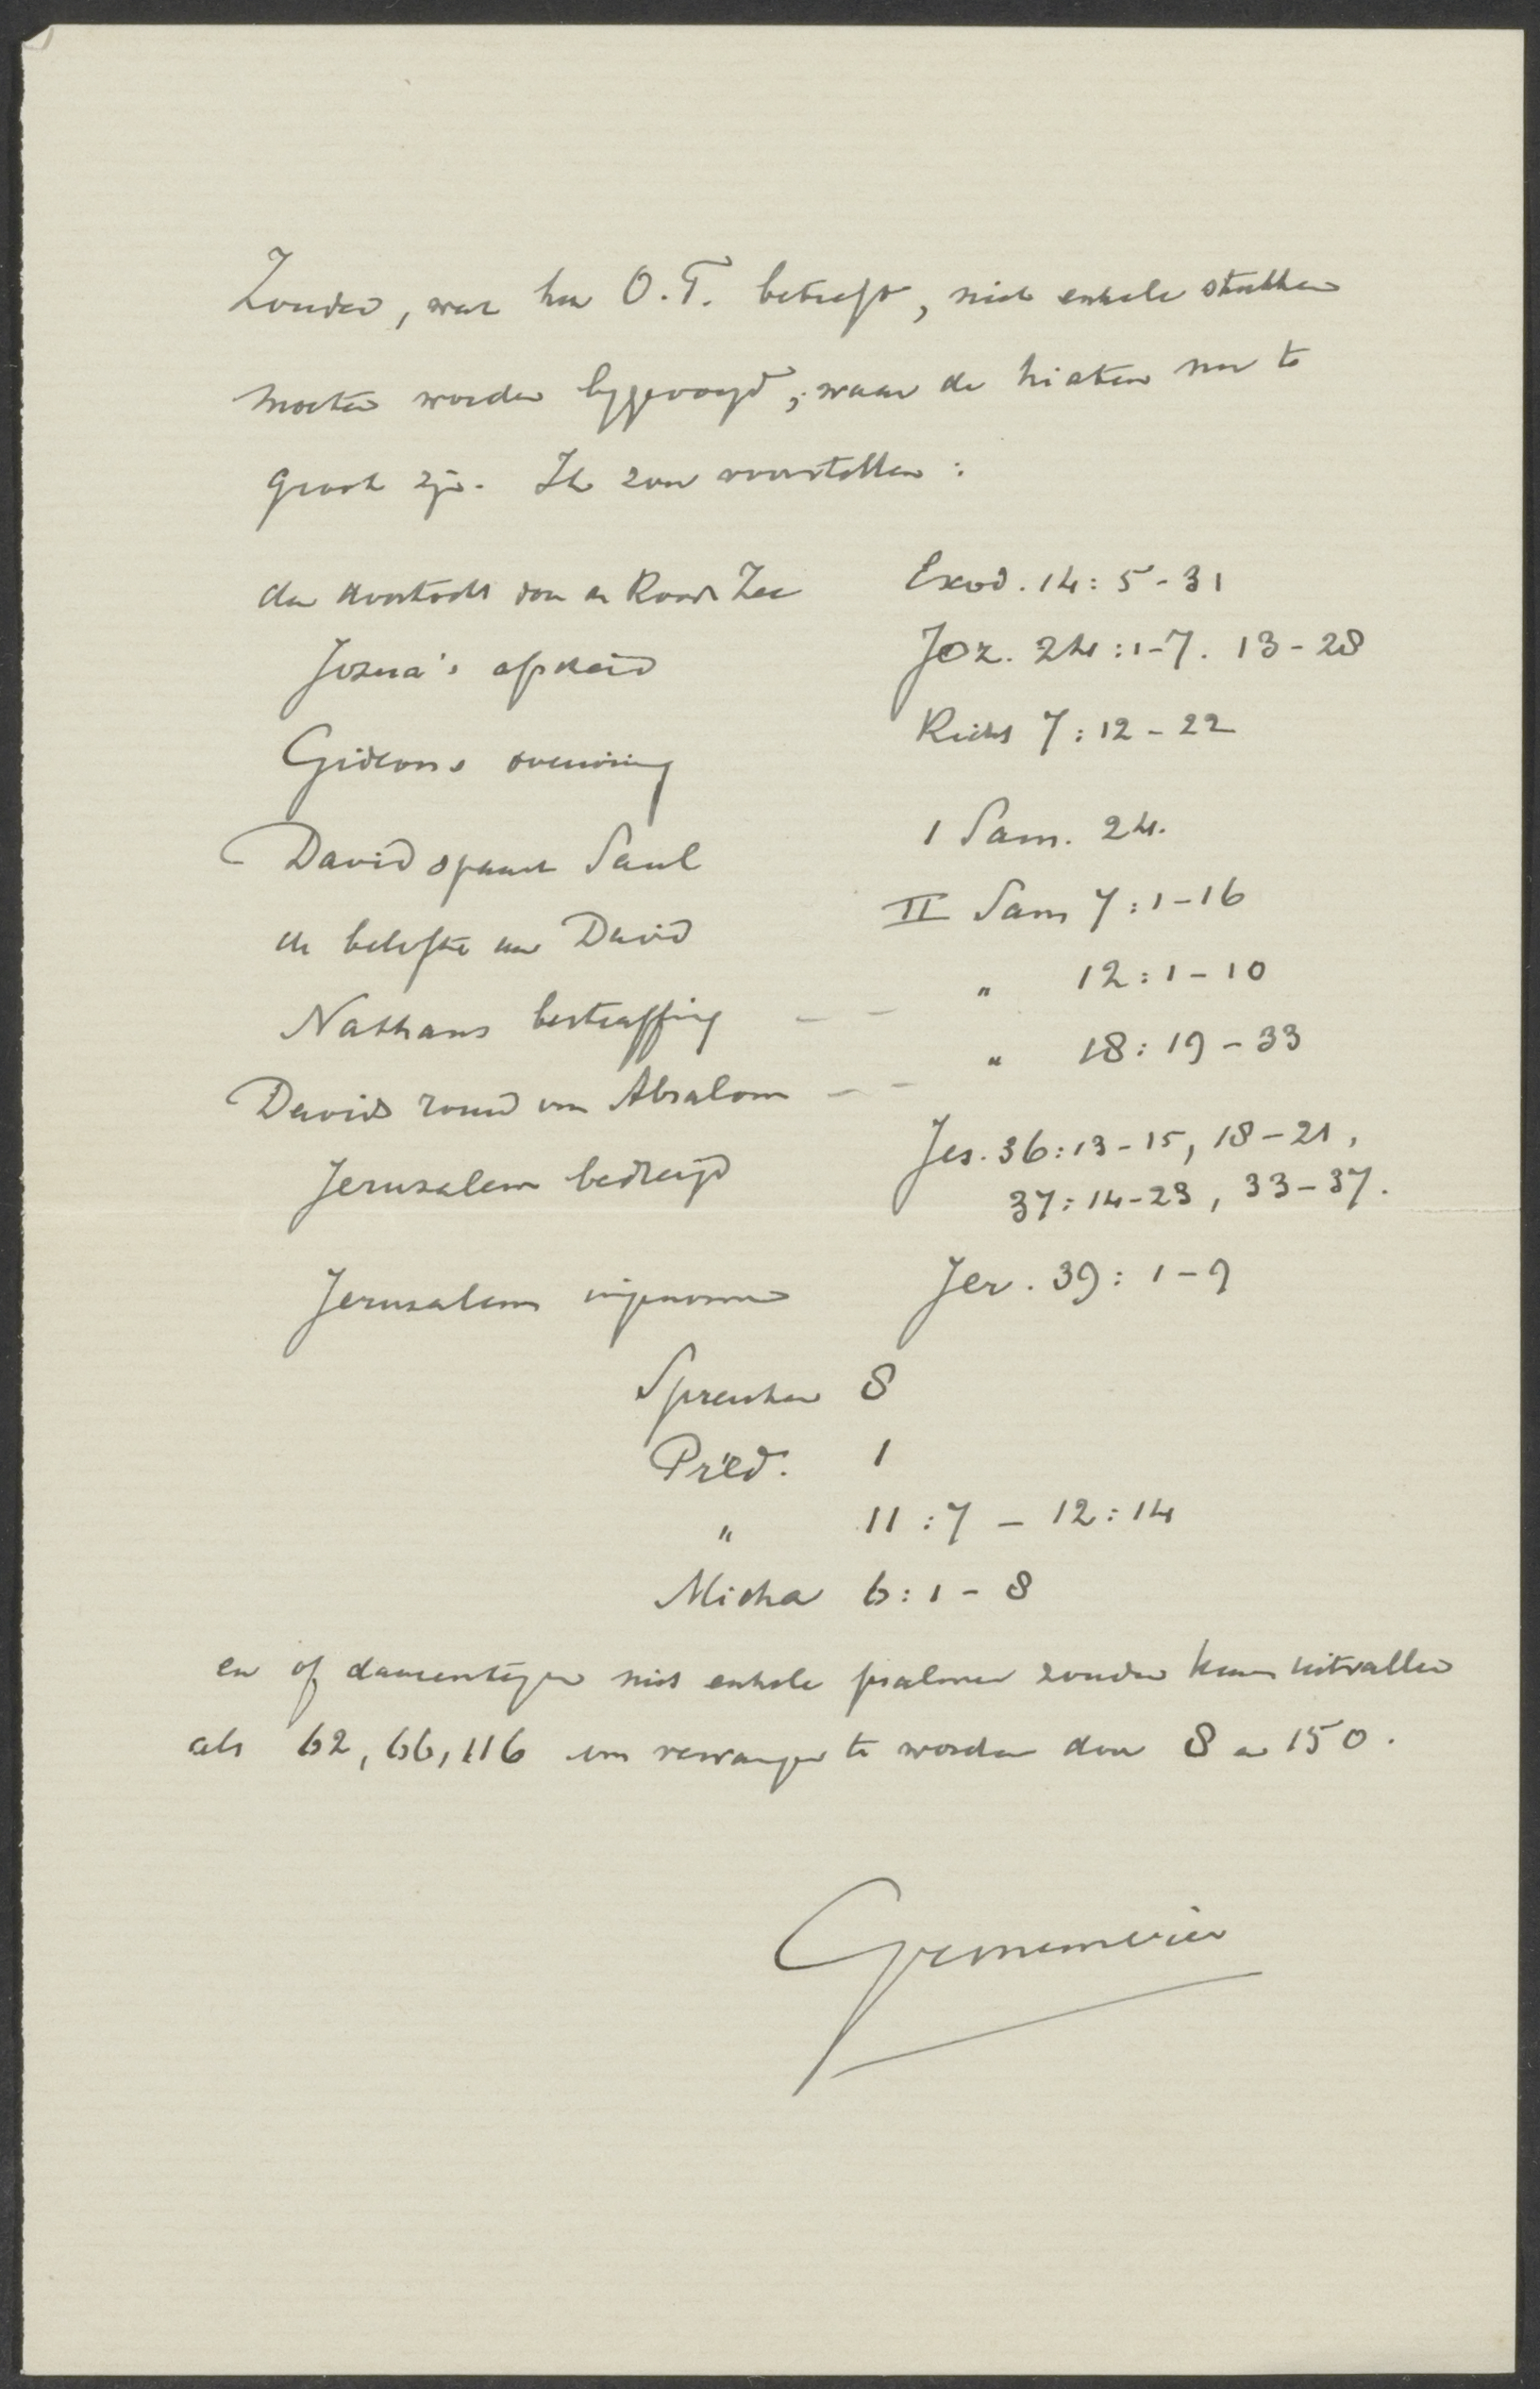 Zouden, wat het O.T. betreft, niet enkele stukken
moeten worden bijgevoegd, waar de hiaten nu te
groot zijn. Ik zou voorstellen:
de doortocht door de Roode Zee Exod. 14:5-31
Jozua's afscheid Joz. 24:1-7. 13-28
Gideons overwinning Richt 7:12-22
David spaart Saul 1 Sam. 24.
de belofte aan David II Sam 7:1-16
Nathans bestraffing — — " 12:1-10
Davids rouw om Absalom — — " 18:19-33
Jerusalem bedreigd Jes. 36:13-15, 18-21,
37:14-23, 33-37.
Jerusalem ingenomen Jer. 39:1-9
Spreuken 8
Pred. 1
" 11:7 - 12:14
Micha 6:1-8
en of daarentegen niet enkele psalmen zouden kunnen uitvallen
als 62, 66, 116 om vervangen te worden door 8 en 150.